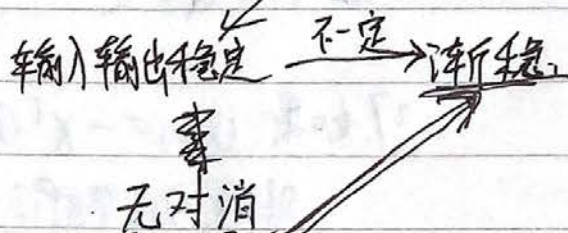 输入输出稳定 不一定 渐稳
无对消